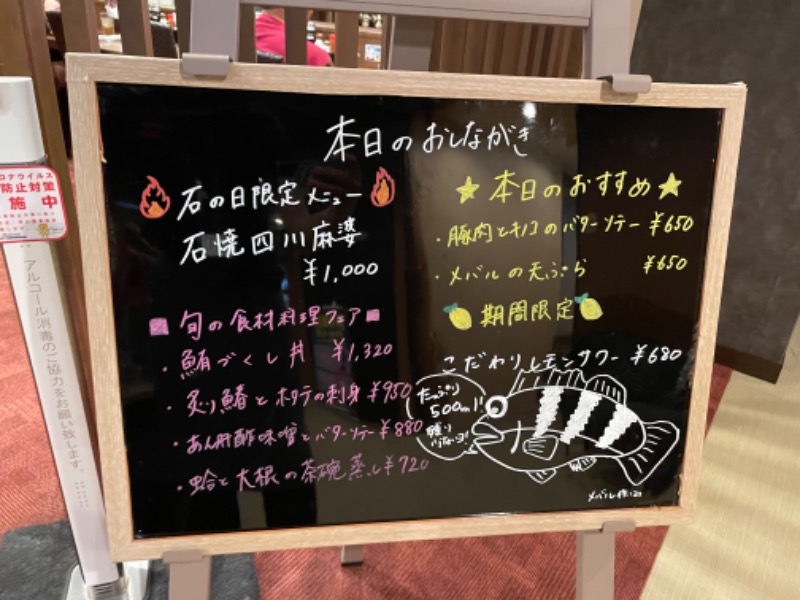 本日のおしながき
石の日限定メニュー
石焼四川麻婆
¥1,000
旬の食材料理フェア
・鮪づくし丼 ¥1,320
・炙り鰆とホタテの刺身 ¥950
・あん肝酢味噌とバターソテー ¥880
・蛤と大根の茶碗蒸し ¥720
★本日のおすすめ★
・豚肉とキノコのバターソテー ¥650
・メバルの天ぷら ¥650
期間限定
こだわりレモンサワー ¥680
たっぷり
500ml!
メバル
ロナウイルス
防止対策
施中
アルコール消毒のご協力をお願い致します。